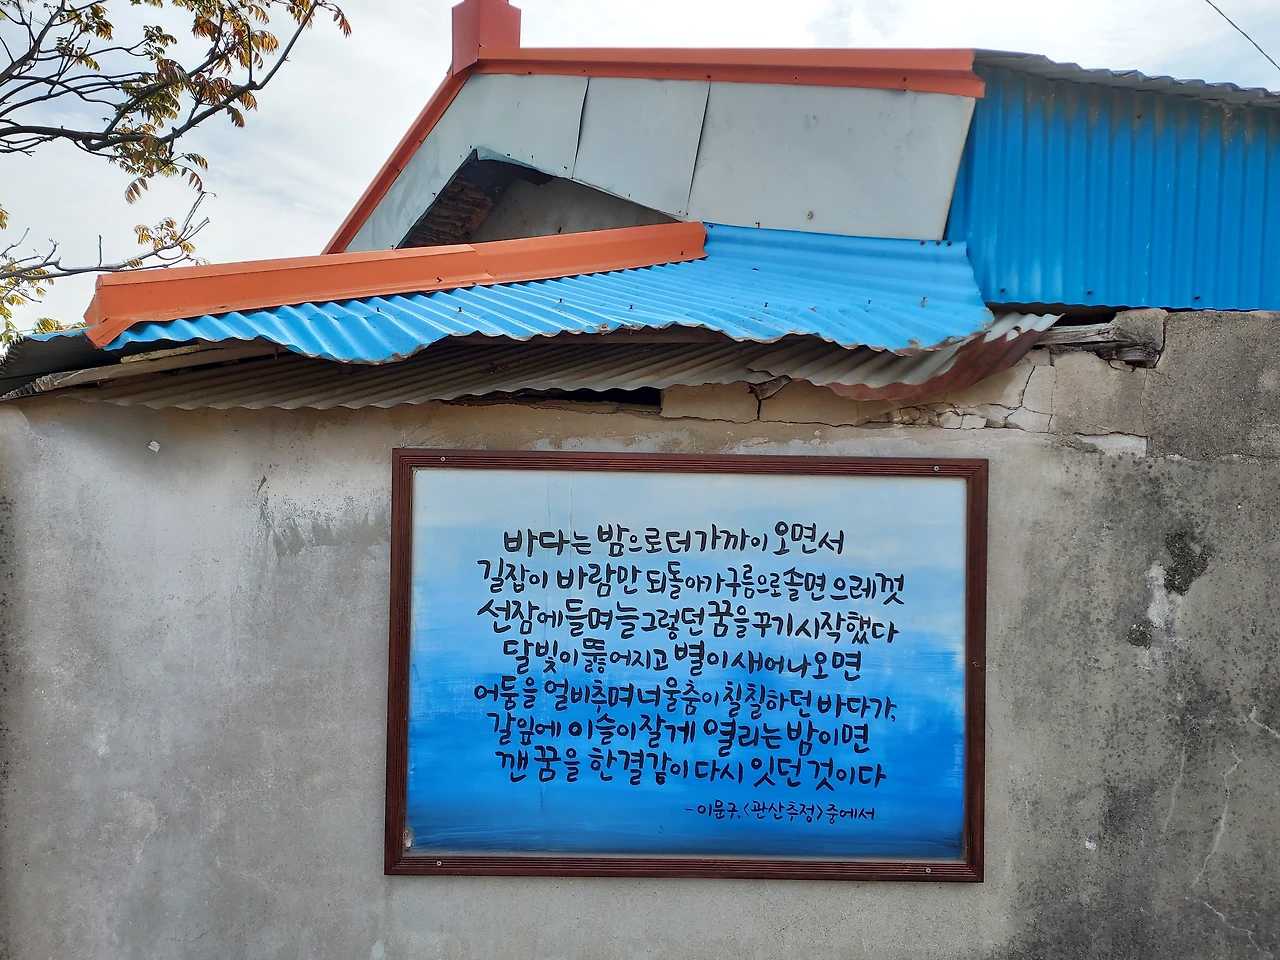 바다는 밤으로 더 가까이 오면서
길잡이 바람만 되돌아가 구름으로 솔면 으레껏
선잠에 들며 늘 그렇던 꿈을 꾸기 시작했다
달빛이 뚫어지고 별이 새어나오면
어둠을 얼비추며 너울춤이 칠칠하던 바다가,
갈잎에 이슬이 잘게 열리는 밤이면
깬 꿈을 한결같이 다시 잇던 것이다
- 이문구, <관산추정> 중에서